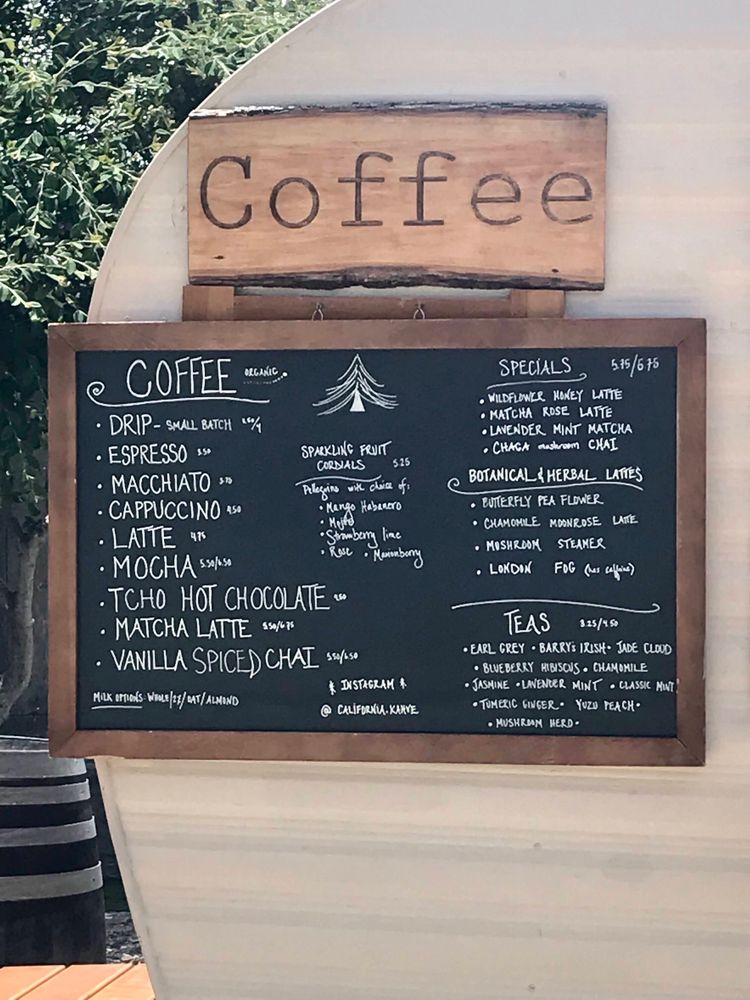 Coffee
COFFEE ORGANIC
· DRIP - SMALL BATCH
· ESPRESSO 3.50
· MACCHIATO 3.75
· CAPPUCCINO 4.50
· LATTE 4.75
· MOCHA 5.50/6.50
· TCHO HOT CHOCOLATE
· MATCHA LATTE 5.50/6.75
· VANILLA SPICED CHAI 5.50/6.50
MILK OPTIONS: WHOLE/2%/OAT/ALMOND
SPARKLING FRUIT
CORDIALS 5.25
Pellegrino with choice of:
· Mango Habanero
· Mojito
· Strawberry lime
· Rose · Marionberry
* INSTAGRAM *
@ CALIFORNIA.KAHVE
SPECIALS 5.75/6.75
· WILDFLOWER HONEY LATTE
· MATCHA ROSE LATTE
· LAVENDER MINT MATCHA
· CHAGA mushroom CHAI
BOTANICAL & HERBAL LATTES
· BUTTERFLY PEA FLOWER
· CHAMOMILE MOONROSE LATTE
· MUSHROOM STEAMER
· LONDON FOG (has caffeine)
TEAS 3.25/4.50
· EARL GREY · BARRY'S IRISH · JADE CLOUD
· BLUEBERRY HIBISCUS · CHAMOMILE
· JASMINE · LAVENDER MINT · CLASSIC MINT
· TUMERIC GINGER · YUZU PEACH ·
· MUSHROOM HERB ·